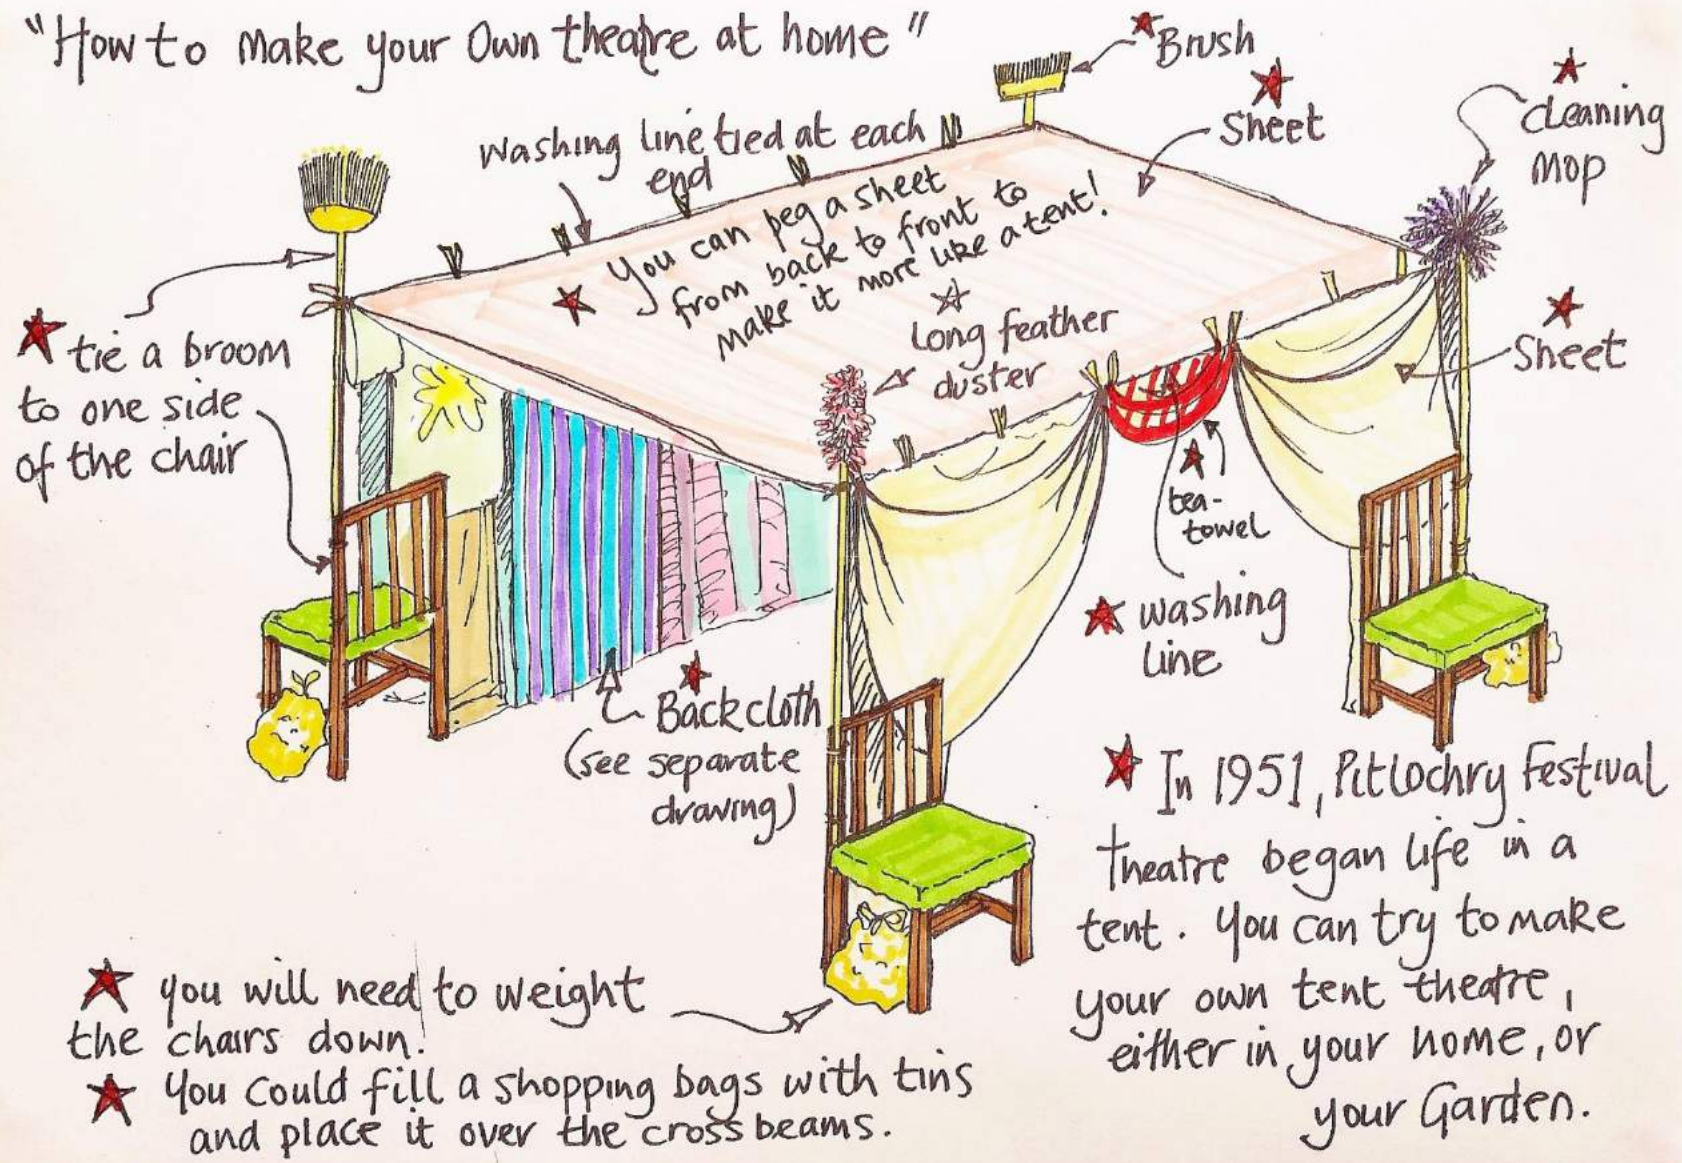 "How to make your Own theatre at home"
Brush
Sheet
cleaning
mop
washing line tied at each
end
You can peg a sheet
from back to front to
make it more like a tent!
long feather
duster
Sheet
tie a broom
to one side
of the chair
tea-
towel
washing
line
Backcloth
(see separate
drawing)
In 1951, Pitlochry Festival
Theatre began life in a
tent. You can try to make
your own tent theatre,
either in your home, or
your Garden.
you will need to weight
the chairs down.
You could fill a shopping bags with tins
and place it over the crossbeams.